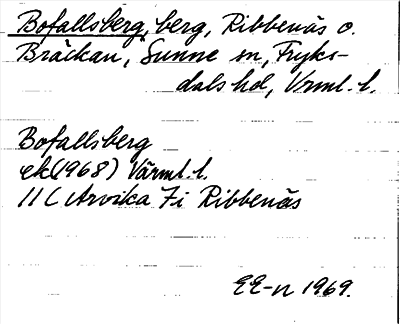 Bofallsberg, berg, Ribbenäs o.
Bräckan, Sunne sn, Fryks-
dals hd, Vrml. l.
Bofallsberg
ek (1968) Värml. l.
11 C Arvika 7i Ribbenäs
EE-n 1969.